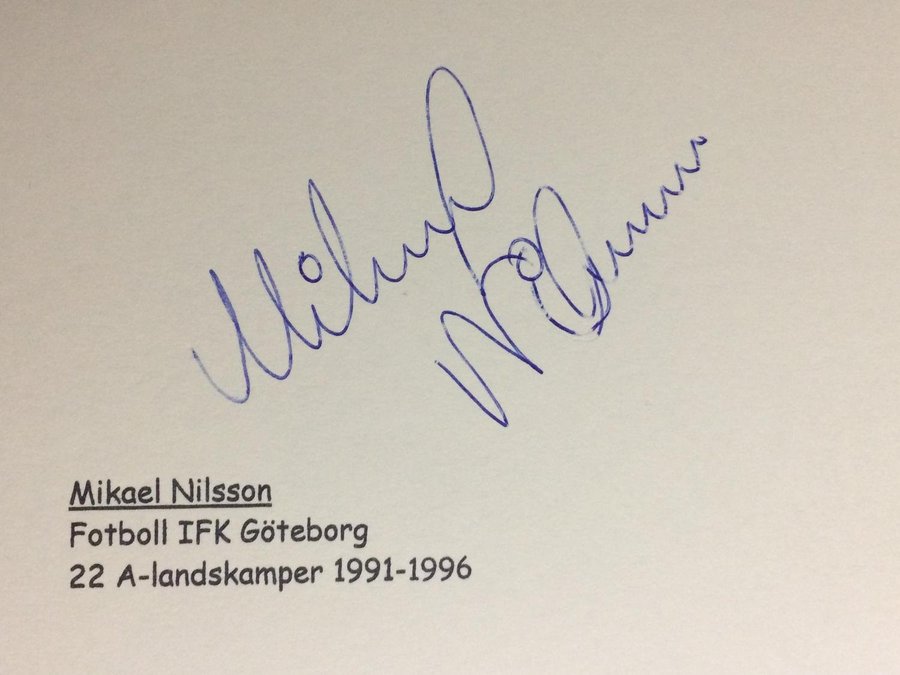 Mikael
Nilsson
Mikael Nilsson
Fotboll IFK Göteborg
22 A-landskamper 1991-1996